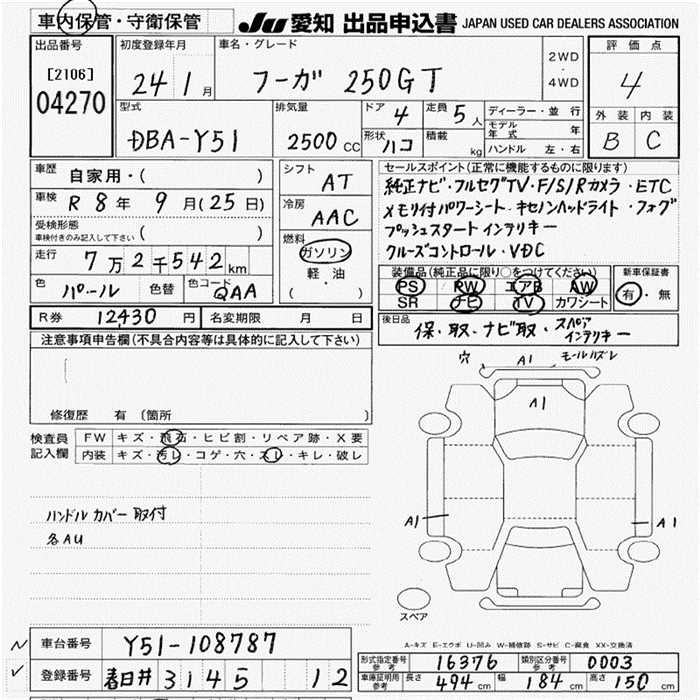 車内保管・守衛保管
JU 愛知 出品申込書 JAPAN USED CAR DEALERS ASSOCIATION
出品番号
[2106]
04270
初度登録年月
24 1月
車名・グレード
フーガ 250GT
2WD
・
4WD
評価点
4
外装 内装
B C
型式
DBA-Y51
排気量
2500 CC
ドア 4
形状 ハコ
定員 5人
積載 kg
ディーラー・並行
モデル年式 年
ハンドル 左・右
車歴
自家用・( )
車検 R 8年 9月(25日)
受検形態
車検付きのみ記入して下さい ( )
走行 7万2千542km
色 パール 色替 色コード QAA
シフト AT
冷房 AAC
燃料
ガソリン
軽・油
( )
セールスポイント(正常に機能するものに限ります)
純正ナビ・フルセグTV・F/S/Rカメラ・ETC
メモリ付パワーシート・キセノンヘッドライト・フォグ
プッシュスタート インテリキー
クルーズコントロール・VDC
装備品(純正品に限り○をつけてください)
PS PW エアB AW
SR ナビ TV カワシート
新車保証書
有・無
R券 12,430 円 名変期限 月 日
後日品
保・取・ナビ取・スペア
インテリキー
注意事項申告欄(不具合内容等は具体的に記入して下さい)
修復歴 有(箇所 )
検査員
記入欄
FW キズ・飛石・ヒビ割・リペア跡・X要
内装 キズ・汚レ・コゲ・穴・スレ・キレ・破レ
ハンドルカバー取付
各AU
穴 A1 モールハズレ
A1
A1
A1
スペア
A-キズ E-エクボ U-凹み W-補修跡 S-サビ C-腐食 XX-交換済
車台番号 Y51-108787
登録番号 春日井 3145 12
型式指定番号
参考 16376
類別区分番号
参考 0003
車庫証明用
参考 長さ 494cm 幅 184cm 高さ 150cm